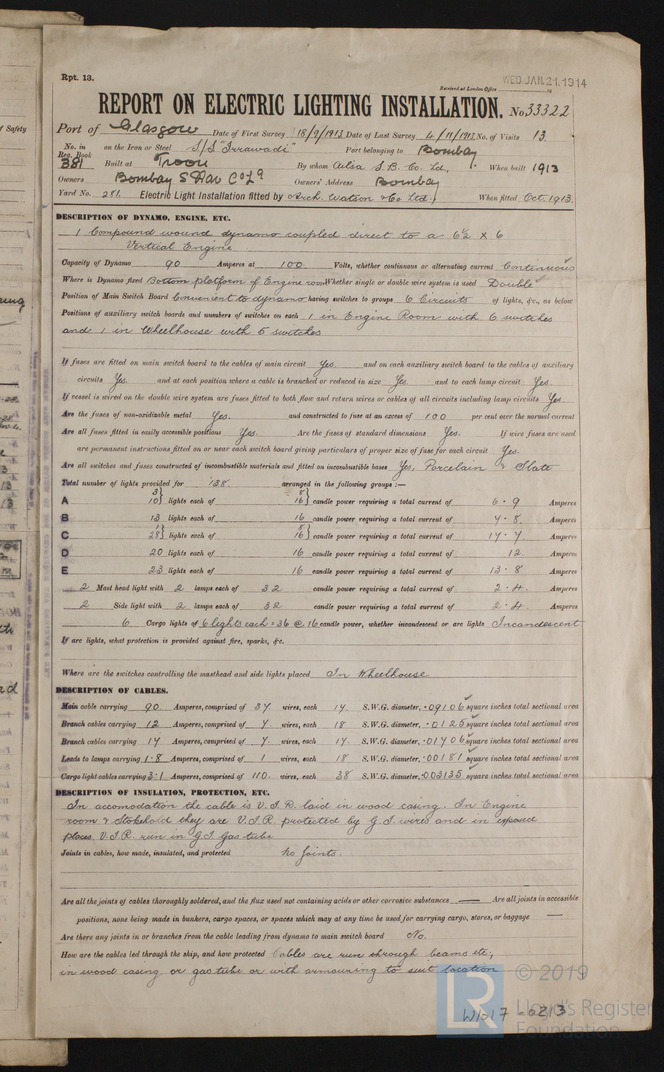 Rpt. 13.
WED. JAN. 21. 1914
Received at London Office
REPORT ON ELECTRIC LIGHTING INSTALLATION. No 33322
Port of Glasgow Date of First Survey 18/9/1913 Date of Last Survey 4/11/1913 No. of Visits 13
No. in Reg. Book 381 on the Iron or Steel S/S "Irrawadi" Port belonging to Bombay
Built at Troon By whom Ailsa S.B. Co. Ld. When built 1913
Owners Bombay S Nav Co Ld Owners' Address Bombay
Yard No. 281 Electric Light Installation fitted by Arch. Watson & Co Ltd. When fitted Oct. 1913.
DESCRIPTION OF DYNAMO, ENGINE, ETC.
1 Compound wound dynamo coupled direct to a 6½ x 6
Vertical Engine
Capacity of Dynamo 90 Amperes at 100 Volts, whether continuous or alternating current Continuous
Where is Dynamo fixed Bottom platform of Engine room Whether single or double wire system is used Double
Position of Main Switch Board Convenient to dynamo having switches to groups 6 Circuits of lights, &c., as below
Positions of auxiliary switch boards and numbers of switches on each 1 in Engine Room with 6 switches
and 1 in Wheelhouse with 5 switches
If fuses are fitted on main switch board to the cables of main circuit Yes. and on each auxiliary switch board to the cables of auxiliary
circuits Yes. and at each position where a cable is branched or reduced in size Yes. and to each lamp circuit Yes.
If vessel is wired on the double wire system are fuses fitted to both flow and return wires or cables of all circuits including lamp circuits Yes
Are the fuses of non-oxidizable metal Yes. and constructed to fuse at an excess of 100 per cent over the normal current
Are all fuses fitted in easily accessible positions Yes. Are the fuses of standard dimensions Yes. If wire fuses are used
are permanent instructions fitted on or near each switch board giving particulars of proper size of fuse for each circuit Yes.
Are all switches and fuses constructed of incombustible materials and fitted on incombustible bases Yes, Porcelain & Slate
Total number of lights provided for 138. arranged in the following groups :—
3} 8}
A 10} lights each of 16} candle power requiring a total current of 6.9 Amperes
B 13 lights each of 16 candle power requiring a total current of 7.8. Amperes
1} 8}
C 28} lights each of 16} candle power requiring a total current of 17.7 Amperes
D 20 lights each of 16 candle power requiring a total current of 12. Amperes
E 23 lights each of 16 candle power requiring a total current of 13.8 Amperes
2 Mast head light with 2 lamps each of 32 candle power requiring a total current of 2.4. Amperes
2 Side light with 2 lamps each of 32 candle power requiring a total current of 2.4. Amperes
6 Cargo lights of 6 lights each = 36 @ 16 candle power, whether incandescent or arc lights Incandescent
If arc lights, what protection is provided against fire, sparks, &c.
Where are the switches controlling the masthead and side lights placed In Wheelhouse
DESCRIPTION OF CABLES.
Main cable carrying 90 Amperes, comprised of 37 wires, each 17. S.W.G. diameter, .09106 square inches total sectional area
Branch cables carrying 12 Amperes, comprised of 7 wires, each 18 S.W.G. diameter, .0125 square inches total sectional area
Branch cables carrying 17 Amperes, comprised of 7. wires, each 17. S.W.G. diameter, .01706 square inches total sectional area
Leads to lamps carrying 1.8 Amperes, comprised of 1 wires, each 18 S.W.G. diameter, .00181 square inches total sectional area
Cargo light cables carrying 3.1 Amperes, comprised of 110. wires, each 38 S.W.G. diameter, .003135 square inches total sectional area
DESCRIPTION OF INSULATION, PROTECTION, ETC.
In accomodation the cable is V.I.R. laid in wood casing. In Engine
room & Stokehold they are V.I.R. protected by G.I. wires and in exposed
places. V.I.R. run in G.I. gas tube
Joints in cables, how made, insulated, and protected No Joints.
Are all the joints of cables thoroughly soldered, and the flux used not containing acids or other corrosive substances — Are all joints in accessible
positions, none being made in bunkers, cargo spaces, or spaces which may at any time be used for carrying cargo, stores, or baggage —
Are there any joints in or branches from the cable leading from dynamo to main switch board No.
How are the cables led through the ship, and how protected Cables are run through beams etc,
in wood casing or gas tube or with armouring to suit location
© 2019
LR
Lloyd's Register
Foundation
W1017-0213